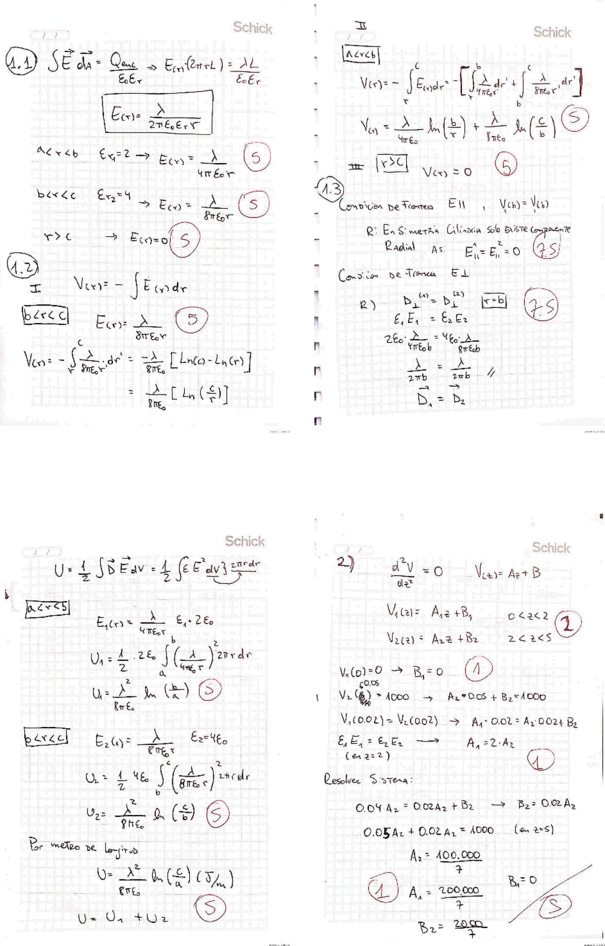 Schick
1.1) ∫ E⃗ dA⃗ = Qenc/ε₀εr → E(r)·(2πrL) = λL/ε₀εr
E(r) = λ/2πε₀εr r
a<r<b εr₁=2 → E(r) = λ/4πε₀r (5)
b<r<c εr₂=4 → E(r) = λ/8πε₀r (5)
r>c → E(r)=0 (5)
1.2)
I V(r) = - ∫ E(r) dr
b<r<c E(r) = λ/8πε₀r (5)
V(r) = - ∫ᵣᶜ λ/8πε₀r' · dr' = -λ/8πε₀ [Ln(c) - Ln(r)]
= λ/8πε₀ [Ln(c/r)]
Schick
II
a<r<b
V(r) = - ∫ᵣᶜ E(r)dr = -[∫ᵣᵇ λ/4πε₀r' dr' + ∫ᵇᶜ λ/8πε₀r' dr']
V(r) = λ/4πε₀ ln(b/r) + λ/8πε₀ ln(c/b) (5)
III r>c V(r) = 0 (5)
1.3
Condicion De Frontera E|| , V₁(b) = V₂(b)
R: En Simetria Cilindrica solo existe componente
Radial Asi E||¹ = E||² = 0 (7.5)
Condicion de Frontera E⊥
R) D⊥⁽¹⁾ = D⊥⁽²⁾ r=b (7.5)
ε₁E₁ = ε₂E₂
2ε₀·λ/4πε₀b = 4ε₀·λ/8πε₀b
λ/2πb = λ/2πb //
D⃗₁ = D⃗₂
Schick
U = 1/2 ∫ D⃗ E⃗ dV = 1/2 ∫ ε E² dV} 2πrdr
a<r<5
E₁(r) = λ/4πε₀r ε₁ = 2ε₀
U₁ = 1/2 · 2ε₀ ∫ₐᵇ (λ/4πε₀r)² 2πrdr
U₁ = λ²/8πε₀ ln(b/a) (5)
b<r<c E₂(r) = λ/8πε₀r ε₂=4ε₀
U₂ = 1/2 4ε₀ ∫ᵇᶜ (λ/8πε₀r)² 2πrdr
U₂ = λ²/8πε₀ ln(c/b) (5)
Por metro de longitud
U = λ²/8πε₀ ln(c/a) (J/m)
U = U₁ + U₂ (5)
Schick
2) d²V/dz² = 0 V(z) = Az + B
V₁(z) = A₁z + B₁ 0<z<2
V₂(z) = A₂z + B₂ 2<z<5 (2)
V₁(0)=0 → B₁=0 (1)
0.05
V₂( ) = 1000 → A₂·0.05 + B₂ = 1000
V₁(0.02) = V₂(0.02) → A₁·0.02 = A₂·0.02 + B₂
ε₁E₁ = ε₂E₂ → A₁ = 2·A₂
(en z=2) (1)
Resolver Sistema:
0.04A₂ = 0.02A₂ + B₂ → B₂ = 0.02A₂
0.05A₂ + 0.02A₂ = 1000 (en z=5)
A₂ = 100.000/7
(1) A₁ = 200.000/7 B₁=0
B₂ = 2000/7 (5)